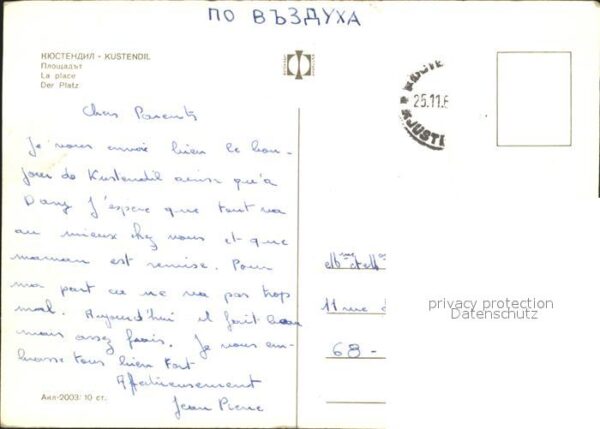 ПО ВЪЗДУХА
КЮСТЕНДИЛ - KUSTENDIL
Площадът
La place
Der Platz
25.11.6
KJUSTE
Chers Parents
Je vous envoie bien le bon-
jour de Kustendil ainsi qu'à
Dany J'espère que tout va
au mieux chez vous et que
maman est remise. Pour
ma part ça ne va pas trop
mal. Aujourd'hui il fait beau
mais assez frais. Je vous em-
brasse tous bien fort
Affectueusement
Jean Pierre
Mme et Mr
11 rue
68 -
privacy protection
Datenschutz
Акл-2003: 10 ст.